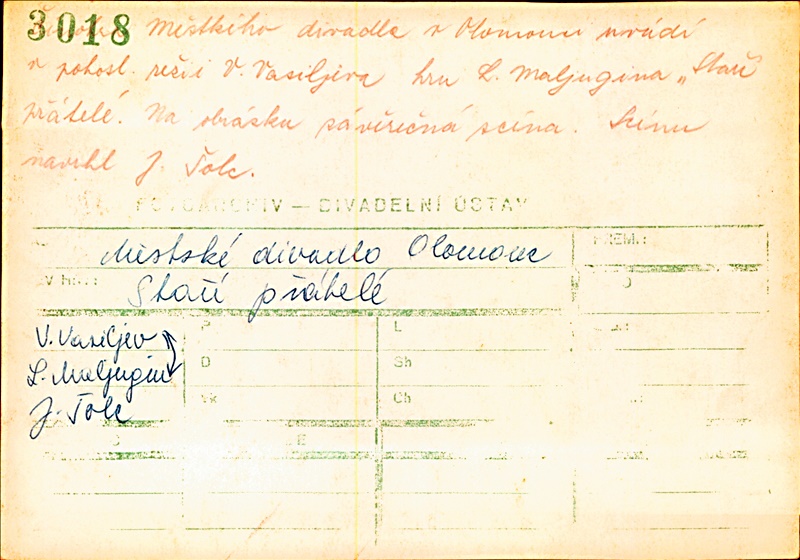 3018
Městkého divadla v Olomouci uvádí
v pohost. režii V. Vasiljeva hru L. Maljugina „Staří
přátelé. Na obrázku závěrečná scéna. Scénu
navrhl J. Tolc.
FOTOARCHIV — DIVADELNÍ ÚSTAV
Městské divadlo Olomouc
PREM.:
Staří přátelé
V. Vasiljev
L. Maljugin
J. Tolc
P
L
D
Sh
Vk
Ch